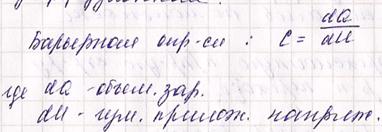 Барьерная опр-ся : C = dQ/dU
где dQ - объем. зар.
dU - изм. прилож. напряж.